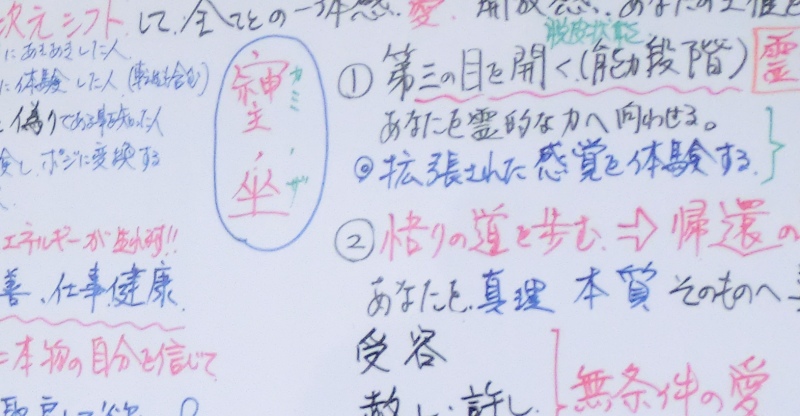 次元シフトして、全てとの一体感、愛、開放感、あなたの
にあきあきした人
に体験した人
偽りである事を知った人
し、ポジに変換する
エネルギーが
善、仕事健康
本物の自分を信じて
神主・坐
カミ・ザ
脱放状態
① 第三の目を開く(能動段階) 霊
あなたを霊的な力へ向わせる。
◎拡張された感覚を体験する。
② 悟りの道を歩む ⇒ 帰還の
あなたを、真理 本質 そのものへ
受容
赦し、許し、
無条件の愛